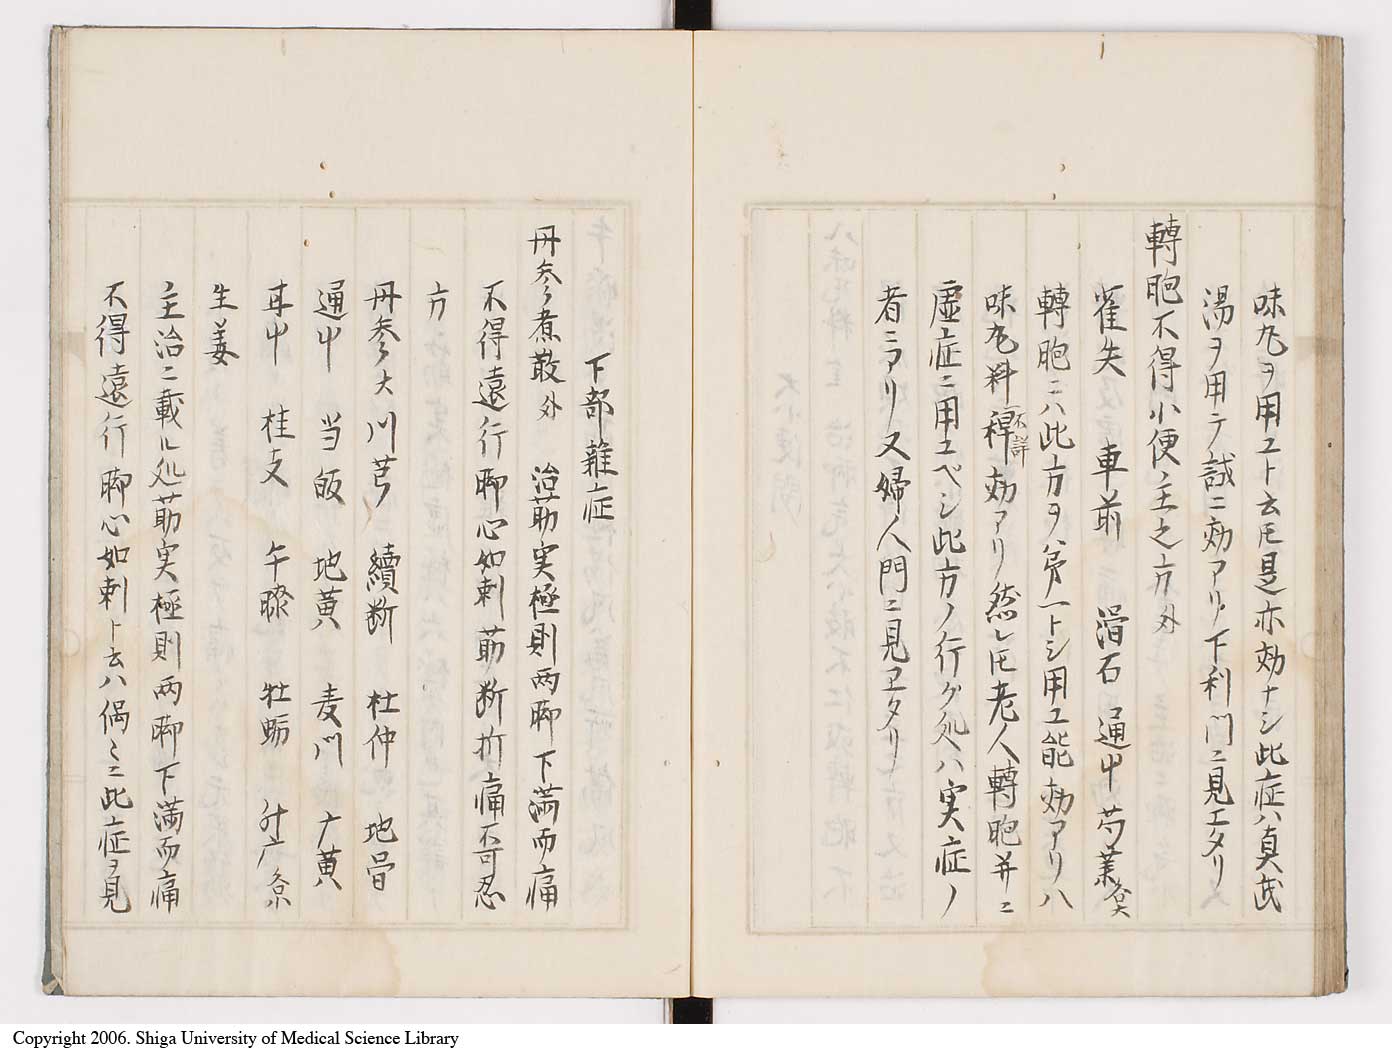 味丸ヲ用ユト云𪜈是亦効ナシ此症ハ真武
湯ヲ用テ誠ニ効アリ下利門ニ見エタリ
轉胞不得小便ノ主之方 外
葟失 車前 滑石 通中 芍薬 各大
轉胞ニハ此方ヲ第一トシ用ユ能効アリ八
味丸料稗 不詳 効アリ然レ𪜈老人轉胞并ニ
虚症ニ用ユベシ此方ノ行ク処ハ実症ノ
者ニアリ又婦人門ニ見ヱタリ
下部雜症
丹参煮散 外 治筋実極則両脚下満而痛
不得遠行脚心如刺筋断折痛不可忍
方
丹参大 川芎 續断 杜仲 地骨
通中 当皈 地黄 麦門 广黄
甘中 桂支 午膝 牡蛎 升广 各小
生姜
主治ニ載ル処筋実極則両脚下満而痛
不得遠行脚心如刺ト云ハ偶々ニ此症ヲ見
Copyright 2006. Shiga University of Medical Science Library